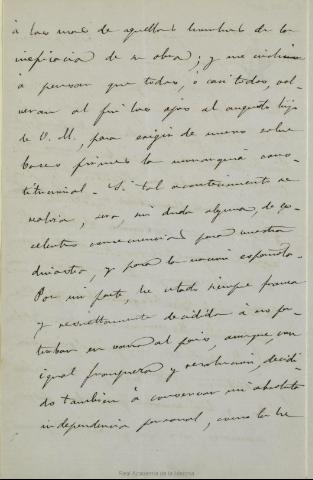 á los mas de aquellos hombres de la
ineficacia de su obra; y me inclino
á pensar que todos, ó casi todos, vol-
veran al fin los ojos al augusto hijo
de V. M., para erigir de nuevo sobre
bases firmes la monarquia cons-
titucional. Si tal acontecimiento se
realiza, sera, sin duda alguna, de ex-
celentes consecuencias para nuestra
dinastia, y para la nacion española.
Por mi parte, he estado siempre franca
y resueltamente decidido á no per-
turbar en vano al pais, aunque, con
igual franqueza y resolucion, decidi-
do tambien á conservar mi absoluta
independencia personal, como la he
Real Academia de la Historia